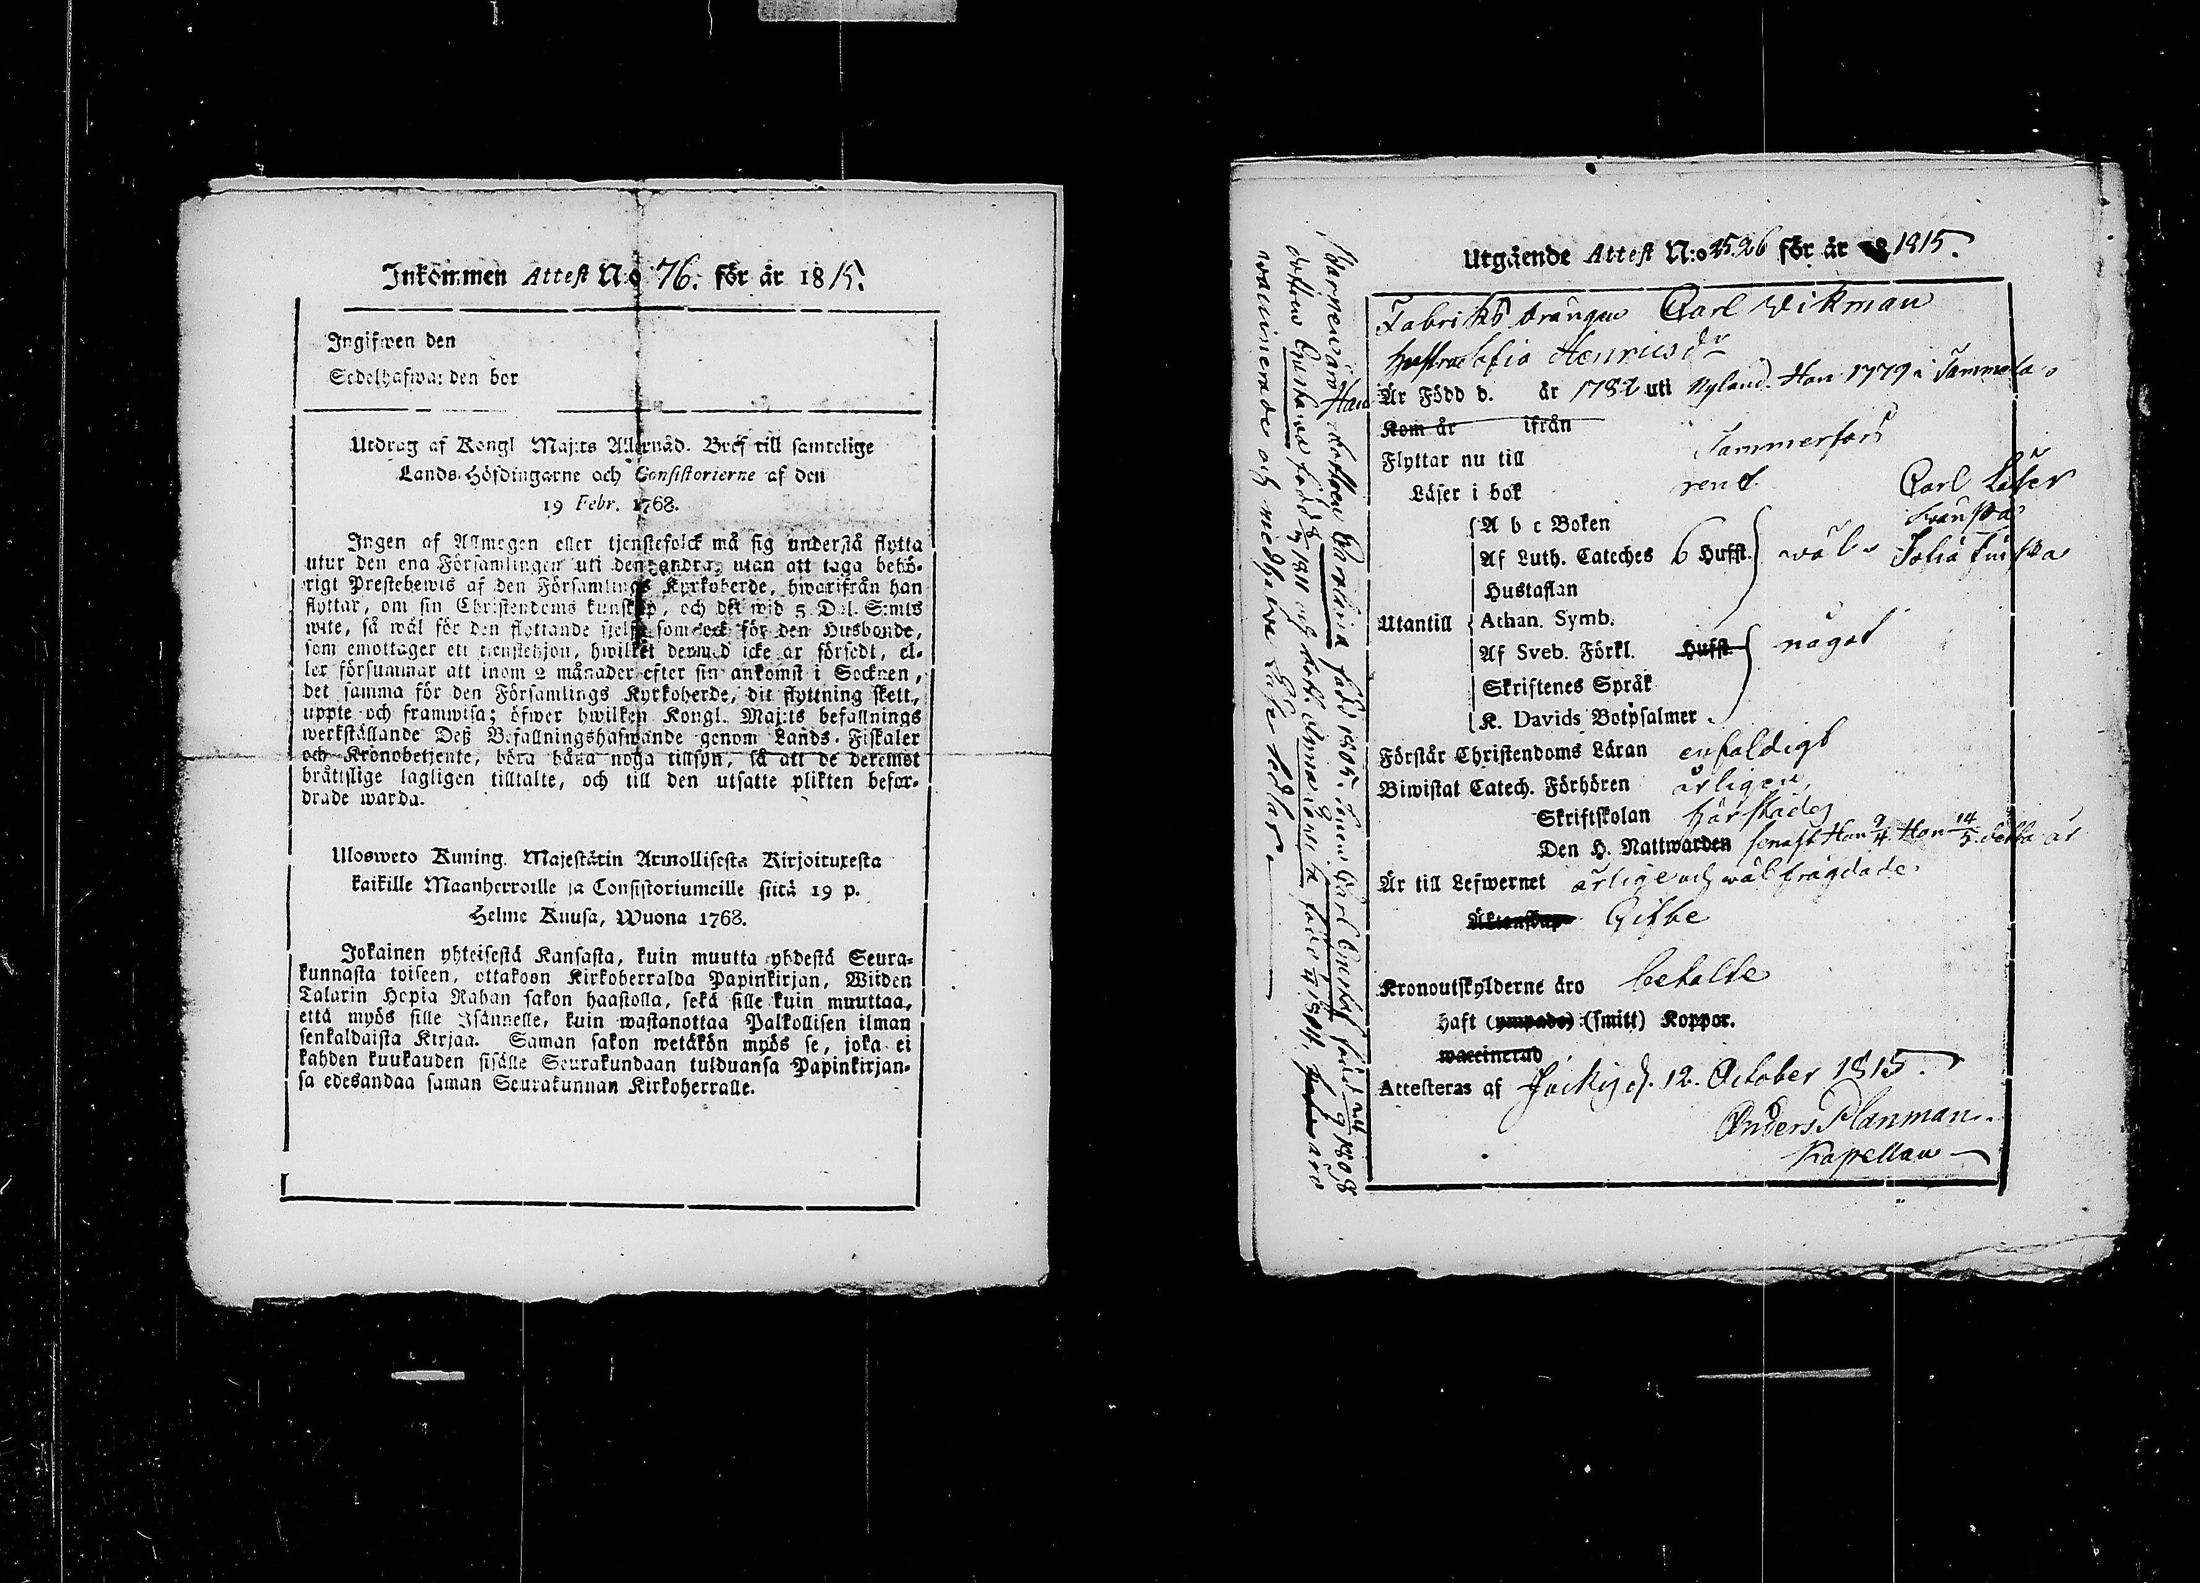 Inkommen Attest N:o 76. för år 1815.
Ingifwen den
Sedelhafwarden bor
Utdrag af Kongl Maj:ts Allernåd. Bref till samtelige
Lands-Höfdingarne och Consistorierne af den
19 Febr. 1768.
Ingen af Allmogen eller tjenstefolck må sig understå flytta
utur den ena Församlingen uti den andra, utan att taga behö-
rigt Prestebewis af den Församlings Kyrkoherde, hwarifrån han
flyttar, om sin Christendoms kunskap, och det wid 5 Dal. S:mts
wite, så wäl för den flyttande sjelf, som ock för den Husbonde,
som emottager ett tjenstehjon, hwilket dermed icke är försedt, el-
ler försummar att inom 2 månader efter sin ankomst i Socknen,
det samma för den Församlings Kyrkoherde, dit flyttning skett,
uppte och framwisa; öfwer hwilken Kongl. Maj:ts befallnings
werkställande Deß Befallningshafwande genom Lands-Fiskaler
och Kronobetjente, böra hafwa noga tillsyn, så att de deremot
bråttslige lagligen tilltalte, och till den utsatte plikten befor-
drade warda.
Ulosweto Kuning. Majestätin Armollisesta Kirjoituxesta
kaikille Maanherroille ja Consistoriumeille siitä 19 p.
Helme Kuusa, Wuona 1768.
Jokainen yhteisestä Kansasta, kuin muutta yhdestä Seura-
kunnasta toiseen, ottakoon Kirkoherralda Papinkirjan, Wiiden
Talarin Hopia Rahan sakon haastolla, sekä sille kuin muuttaa,
että myös sille Isännelle, kuin wastanottaa Palkollisen ilman
senkaldaista Kirjaa. Saman sakon wetäkön myös se, joka ei
kahden kuukauden sisälle Seurakundaan tulduansa Papinkirjan-
sa edesandaa saman Seurakunnan Kirkoherralle.
Utgående Attest N:o 2526 för år 1815.
Fabriks drängen Carl Wikman
hustru Sofia Henricsdr
Är Född d. år 1782 uti Nyland. Hon 1779 i Tammela
Kom år ifrån
Flyttar nu till Tammerfors
Läser i bok rent Carl Läser
A b c Boken Swenska
Af Luth. Cateches 6 Hufst. wäl Sofia Finska
Hustaflan
Utantill Athan. Symb.
Af Sveb. Förkl. Hufst. något
Skriftenes Språk
K. Davids Botpsalmer
Förstår Christendoms Läran enfaldigt
Biwistat Catech. Förhören årligen
Skriftskolan härstädes
Den H. Nattwarden senast Han 9/4 Hon 14/5 detta år
Är till Lefwernet ärlige och wäl frägdade
Äktenskap Gifte
Kronoutskylderne äro betalte
Haft (ympade) (smitt) Koppor.
waccinerad
Attesteras af Jockis d. 12. October 1815.
Anders Planman
Kapellan
Barnen äro dottren född 1805. Sonen Carl född 9 1808
dottren född 1811 och dottr. född 1814, äro
vaccinerade och medhafva